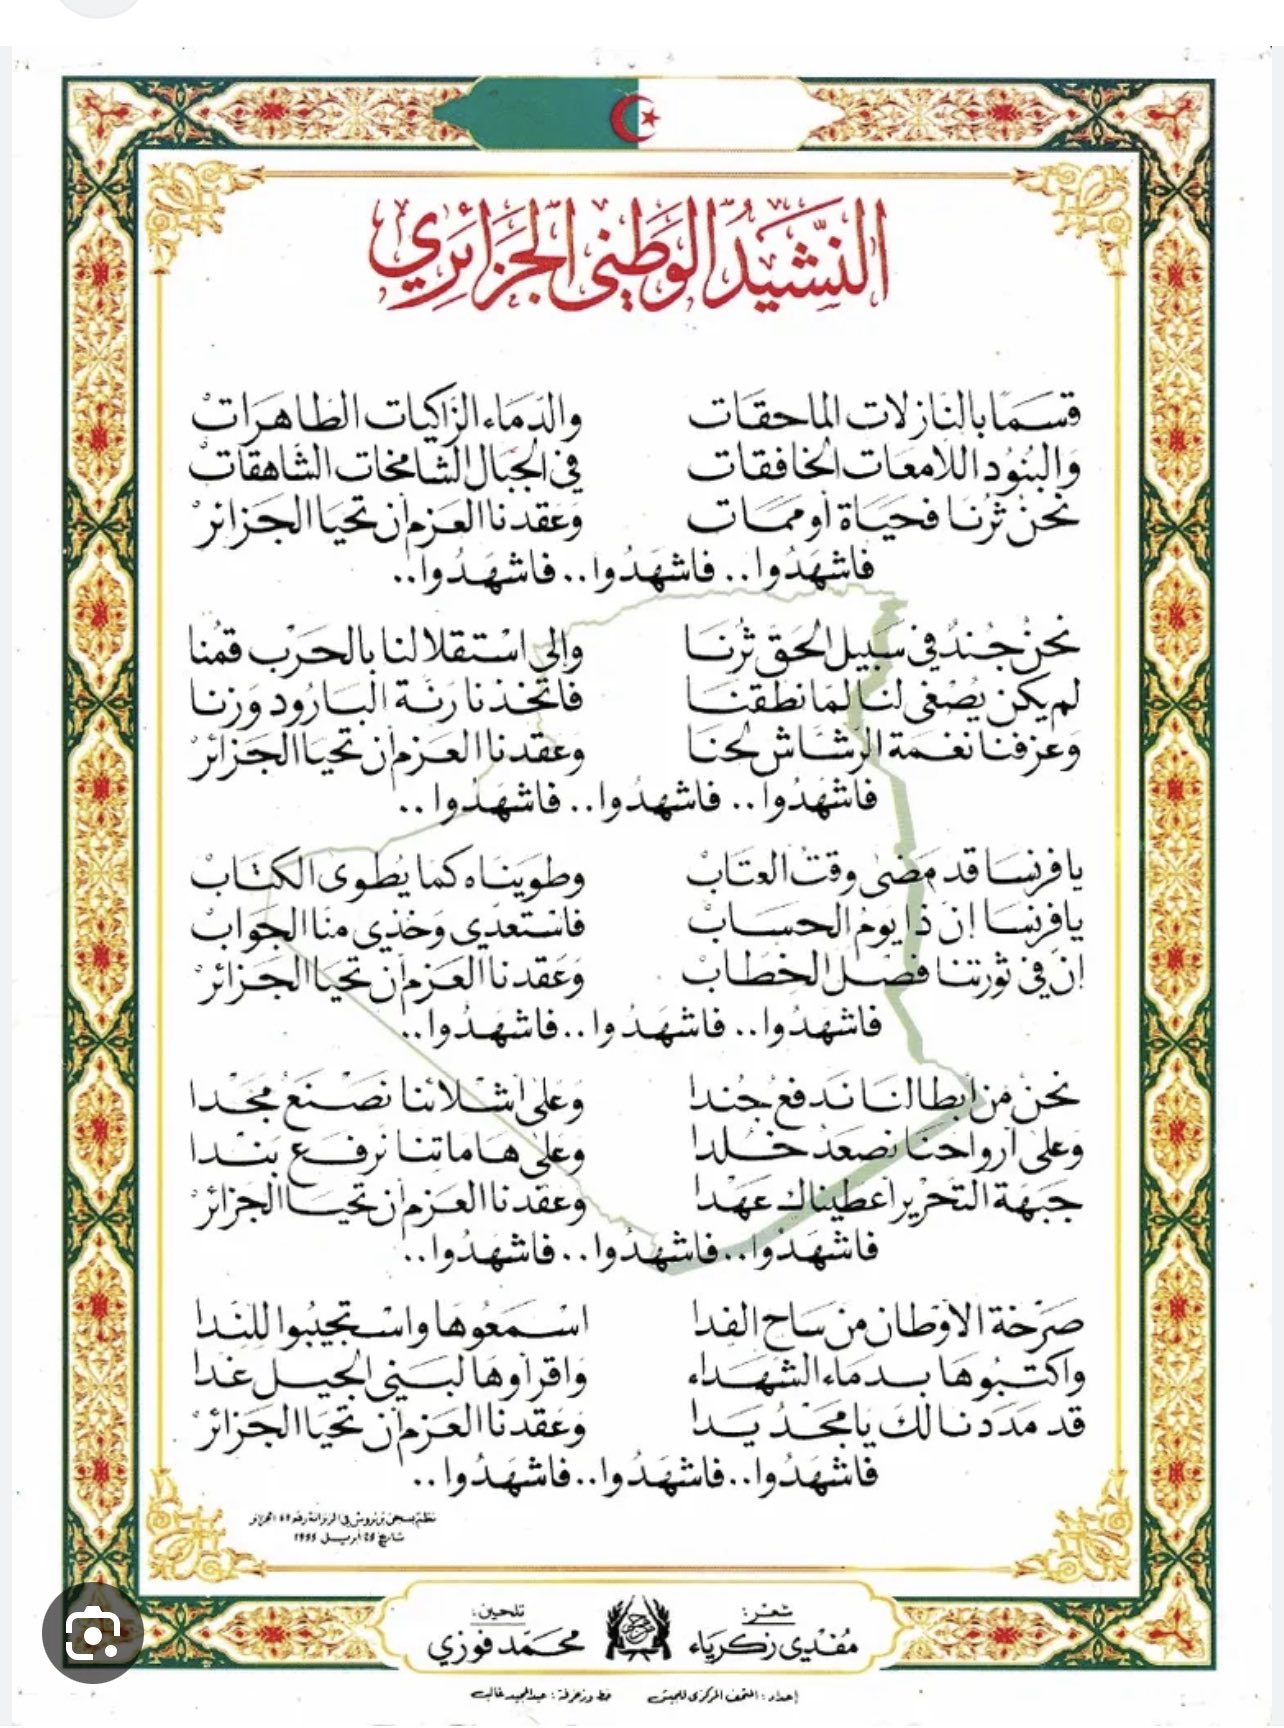 النَّشِيدُ الوَطَنِي الجَزَائِرِي
قسَمًا بالنازلات الماحقات والدّماء الزّاكيات الطاهرات
والبنُود اللامعات الخافقات في الجبال الشامخات الشاهقات
نحنُ ثرنا فحيَاة أو ممات وعقدنا العزم أن تحيا الجزائر
فاشهَدُوا.. فاشهَدُوا.. فاشهَدُوا..
نحنُ جُندٌ في سبيل الحق ثرنا وإلى استقلالنا بالحرب قمُنا
لم يكن يُصْغى لنا لما نطقنا فاتخذنا رنة البارُود وزنا
وعزفنا نغمة الرشّاش لحنا وعقدنا العزم أن تحيا الجزائر
فاشهدُوا.. فاشهدُوا.. فاشهدُوا..
يا فرنسا قد مضى وقتْ العتابْ وطويناه كما يُطوى الكتابْ
يا فرنسا إن ذا يومُ الحسابْ فاستعدي وخذي منا الجوابْ
إن في ثورتنا فصل الخطابْ وعقدنا العزم أن تحيا الجزائر
فاشهدُوا.. فاشهَدُوا.. فاشهدُوا..
نحنُ من أبطالنا ندفعُ جُندا وعلى أشلائنا نصْنعُ مجْدا
وعلى أرواحنا نصعدُ خلدا وعلى هاماتنا نرفع بندا
جبهَة التحرير أعطيناك عهدا وعقدنا العزم أن تحيا الجزائر
فاشهدُوا.. فاشهدُوا.. فاشهدُوا..
صرْخة الأوطان من ساح الفدا اسمعُوها واستجيبُوا للندا
واكتبُوها بدماء الشهداء واقرأوها لبني الجيل غدا
قد مدَدنا لك يا مجْدُ يدا وعقدنا العزم أن تحيا الجزائر
فاشهدُوا.. فاشهَدُوا.. فاشهدُوا..
نظم بسجن بربروس في الزنزانة رقم 69 الجزائر
بتاريخ 25 أبريل 1955
شعر: تلحين:
مُفدي زكرياء محمّد فوزي
إعداد: المتحف المركزي للجيش خط وزخرفة: عبدالمجيد غالب